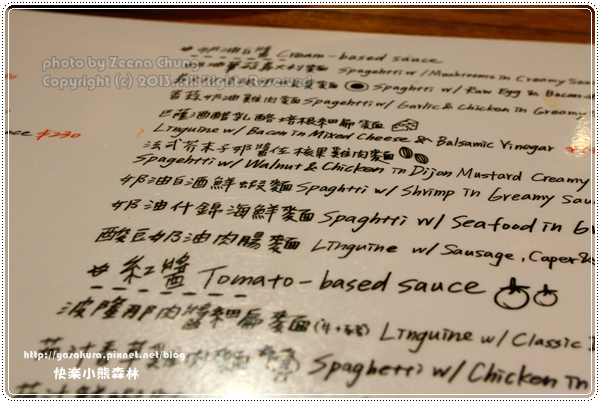 # 奶油白醬 Cream-based sauce
Spagehtti w/ Mushrooms in Creamy Sau
Spaghtti w/ Raw Egg & Bacon
蒜奶油雞肉麵 Spagehtti w/ Garlic & Chicken in Greamy
巴薩米醋乳酪培根細扁麵
Linguine w/ Bacon in Mixed Cheese & Balsamic Vinegar
法式芥末子奶醬佐核果雞肉麵
Spagehtti w/ Walnut & Chicken in Dijon Mustard Creamy
奶油白酒鮮蝦麵 Spaghtti w/ Shrimp in Greamy Sau
奶油什錦海鮮麵 Spaghtti w/ Seafood in Gr
酸豆奶油肉腸麵 Linguine w/ Sausage, Caper &
# 紅醬 Tomato-based sauce
波隆那肉醬細扁麵(牛+豬) Linguine w/ Classic
Spaghetti w/ Chicken in
¥230
photo by Zeena Chung
Copyright (c) 2013 All Rights Reserved
http://yasakura.pixnet.net/blog
快樂小熊森林